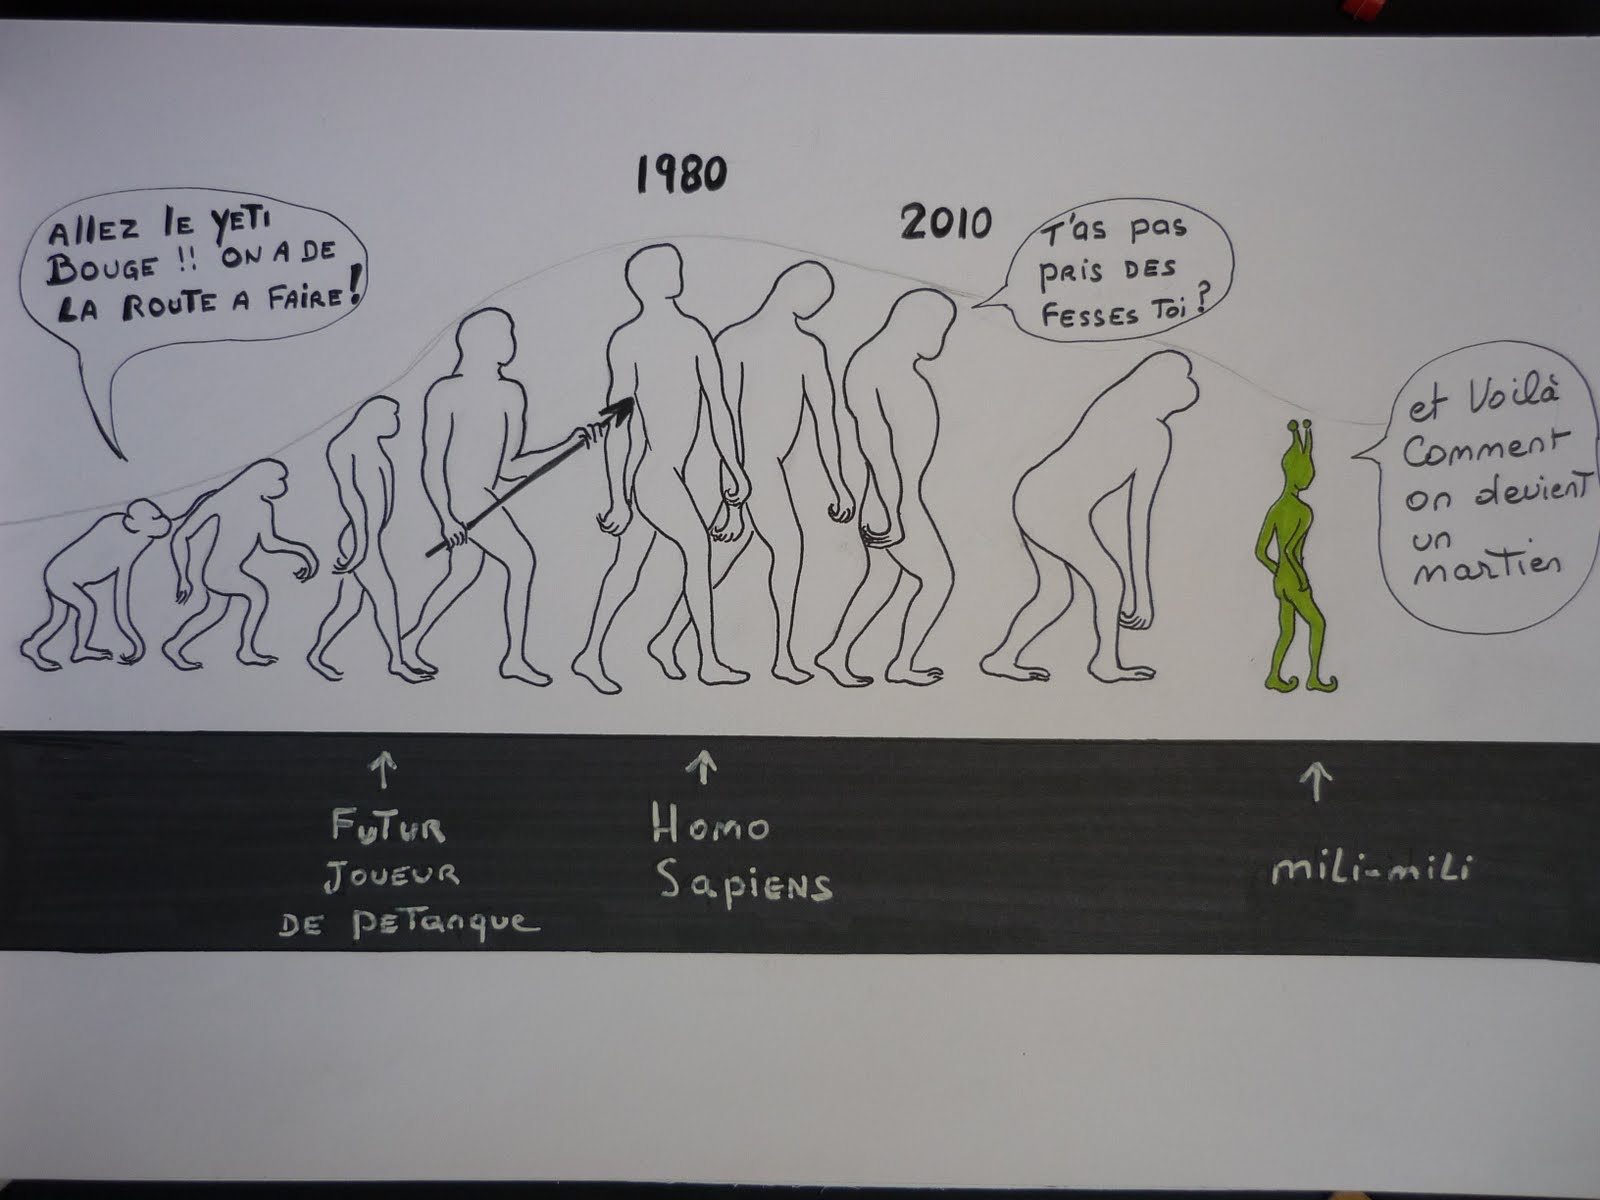 1980
2010
ALLEZ lE YETI
BOUGE !! ON A DE
LA ROUTE A FAiRE!
T'as pas
pRis DES
FESSES Toi ?
et Voilà
Comment
on devient
un
martien
FuTuR
JOUEUR
DE pETanque
Homo
SapiENS
miLi-miLi